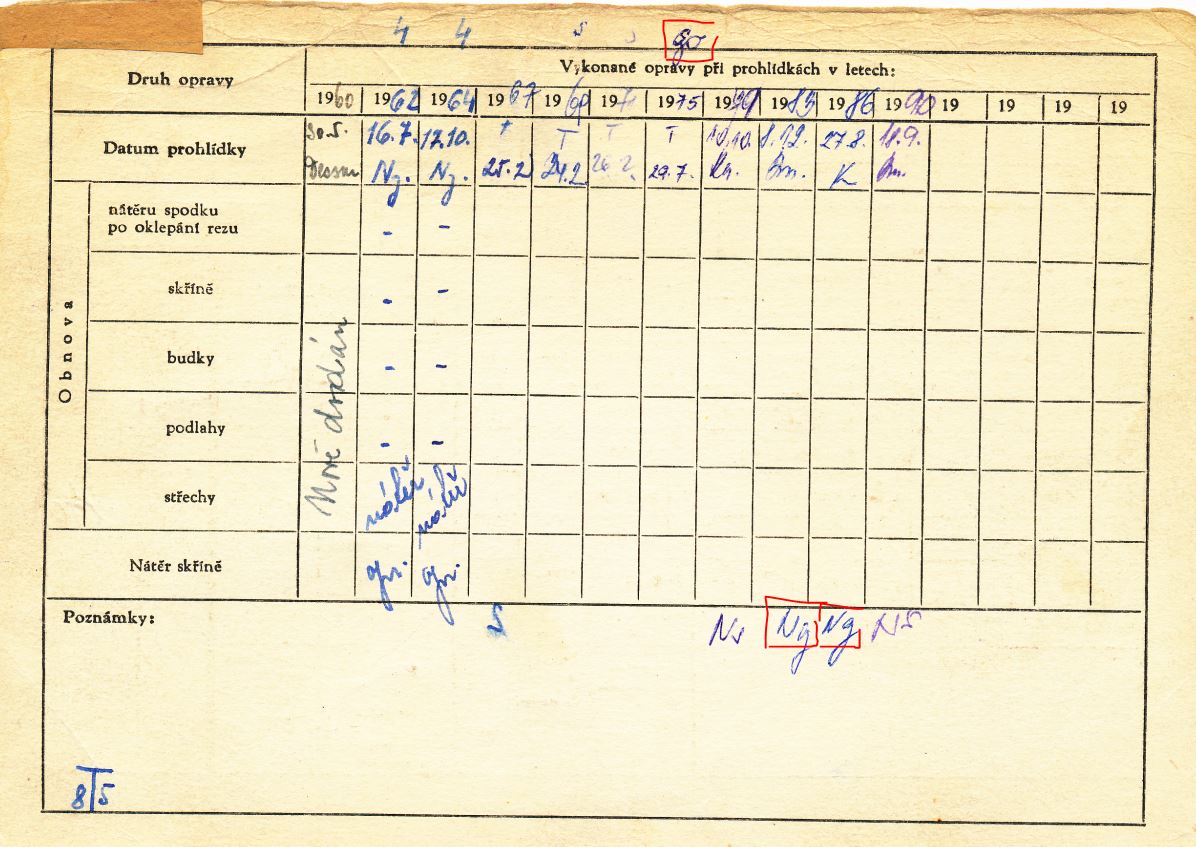 4 4 5 5 go
Druh opravy
Vykonané opravy při prohlídkách v letech:
1960 1962 1964 1967 1969 197 1975 1979 1983 1986 1990 19 19 19 19
Datum prohlídky
30.5. 16.7. 12.10. T T T T 10.10. 8.12. 27.8. 18.9.
Ny. Ny. 25.2 24.2. 26.2. 29.7. K
Obnova
nátěru spodku
po oklepání rezu
- -
skříně
- -
budky
- -
podlahy
- -
střechy
nátěr nátěr
Nově dodán
Nátěr skříně
opr. opr.
Poznámky:
5 Ns Ng Ng NS
8 T 5